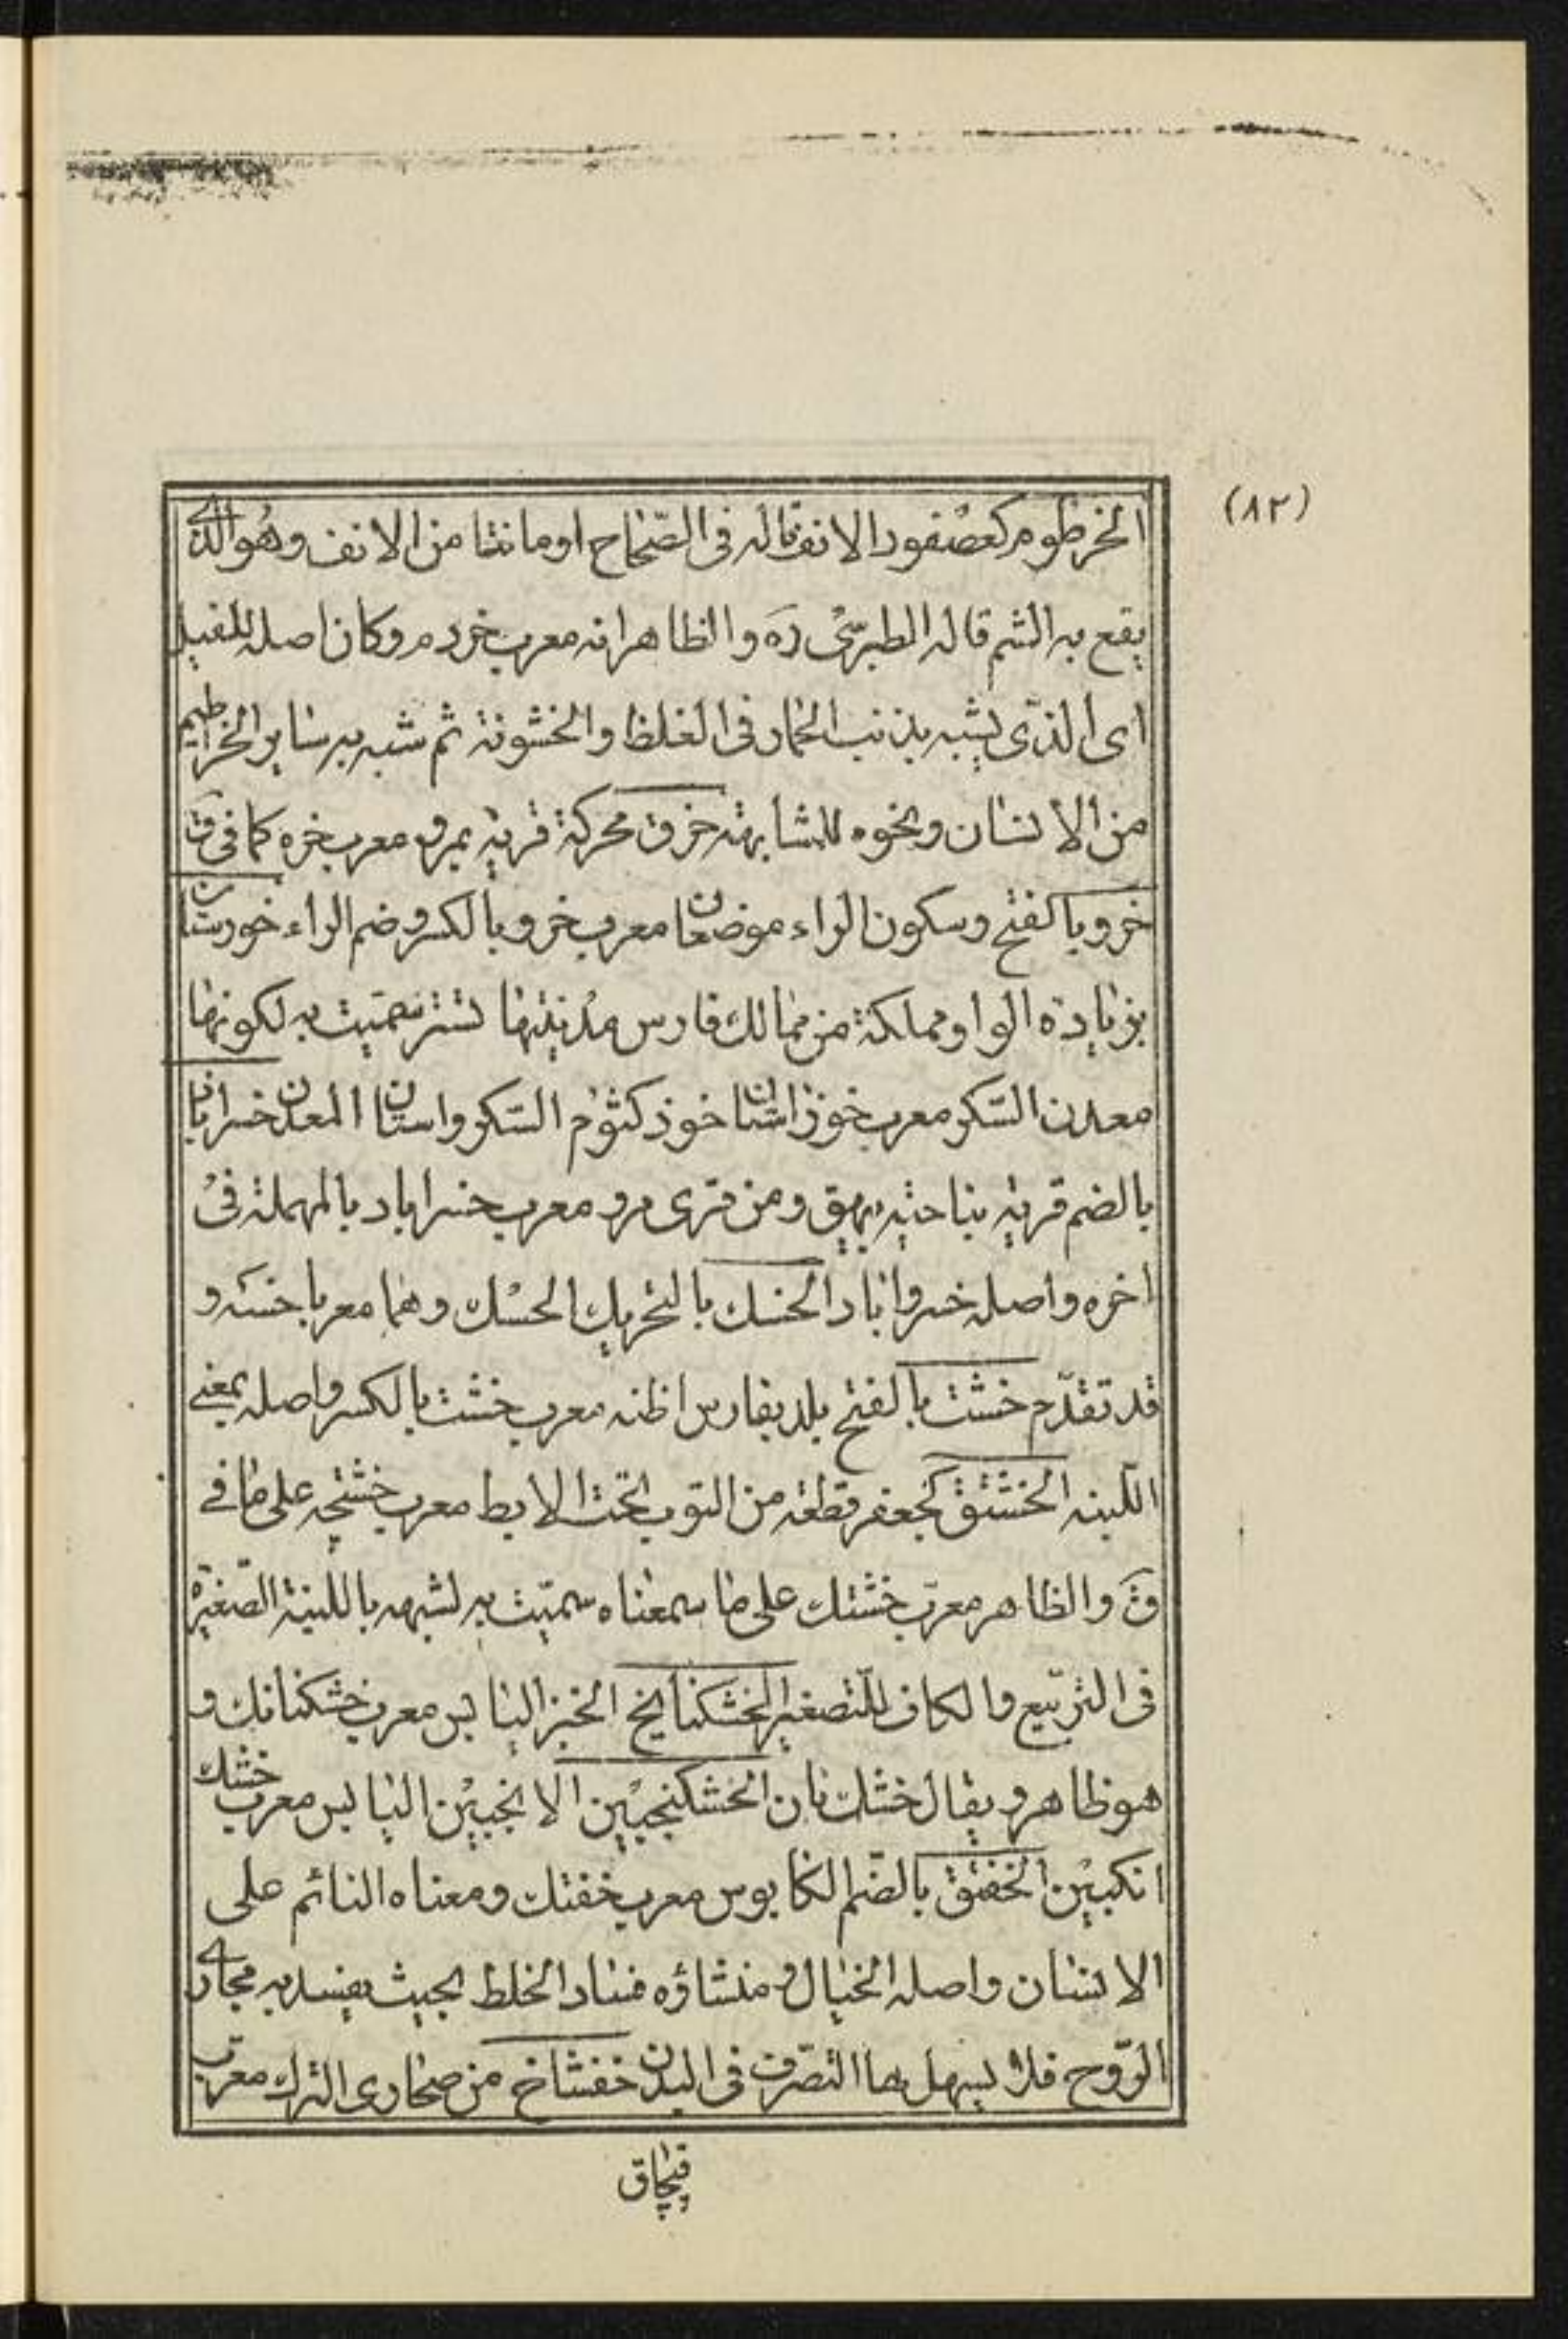 (٨٢)
الخرطوم كعصفور الانف قاله فى الصّحاح او ما نتا من الانف وهُو الذي
يقع به الشم قاله الطبرسّى رَه والظاهر انه معرب خردم وكان اصله للفيل
اى الذّى يشبه بذنب الحمار فى الغلظ والخشونة ثم شبه به ساير الخراطيم
من الانسان ونحوه للمشابهة خرق محركة قرية بمرو معرب خره كما فى ق
خرو بالفتح وسكون الراء موضعان معرب خرو بالكسر وضم الراء خورستان
بزيادة الواو مملكة من ممالك فارس مدينتها تستر سمّيت به لكونها
معدن السّكر معرب خوزاستان خوز كثوم السّكر واستان المعدن خسراباذ
بالضم قرية بناحية بيهق ومن قرى مرو معرب خسراباد بالمهملة فى
اخره واصله خسرواباد الخسك بالتحريك الحسك وهما معربا خسَه و
قد تقدّم خشت بالفتح بلد بفارس اظنه معرب خشت بالكسر واصله بمعنى
اللبنه الخشتق كجعفر قطعة من الثوب تحت الابط معرب خشتچه على ما فى
قَ والظاهر معرّب خشتك على ما سمعناه سمّيت به لشبهه باللبنة الصّغيرة
فى التربيع والكاف للتّصغير الخشكنانج الخبز اليابس معرب خشكنانك و
هو ظاهر ويقال خشك نان الخشكنجبين الانجبين اليابس معرب خشك
انكبين الخفتق بالضّم الكابوس معرب خفتك ومعناه النائم على
الانسان واصله الخيال ومنشاؤه فساد الخلط بحيث يفسد به مجارى
الرّوح فلا يسهل لها التصّرف فى البدن خفشاخ من صحارى الترك معرّب
قپچاق